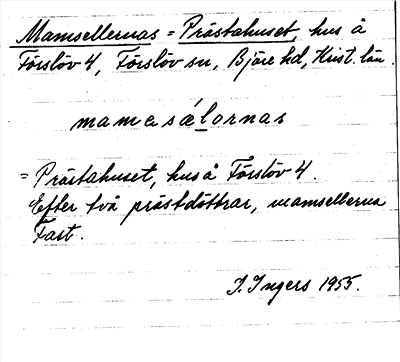 Mamsellernas = Prästahuset, hus å
Förslöv 4, Förslöv sn, Bjäre hd, Krist. län.
mamesälornas
= Prästahuset, hus å Förslöv 4.
Efter två prästdöttrar, mamsellerna
Fast.
I. Ingers 1955.